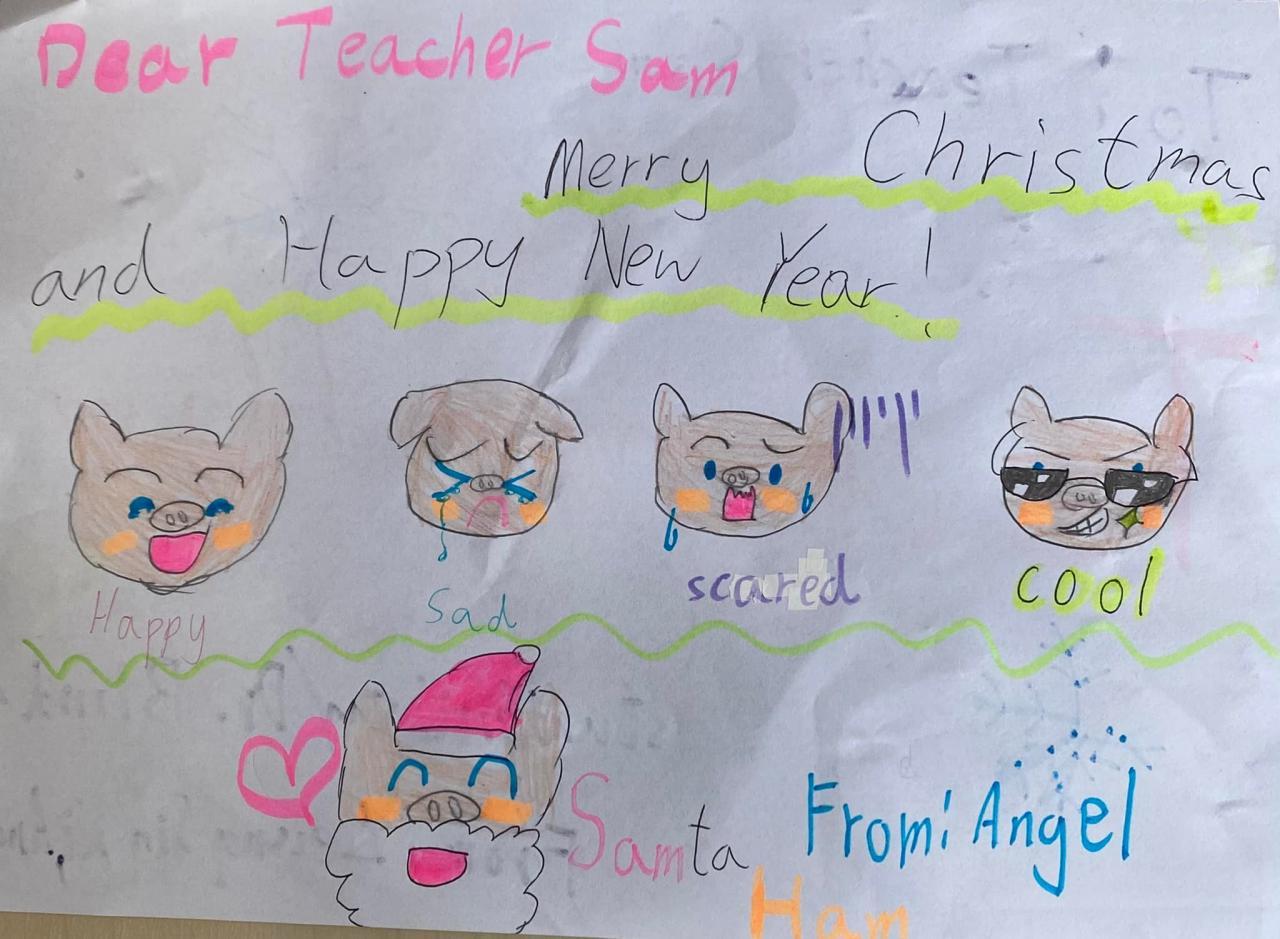 Dear Teacher Sam
Merry Christmas
and Happy New Year!
Happy
Sad
scared
cool
Samta
From: Angel
Ham